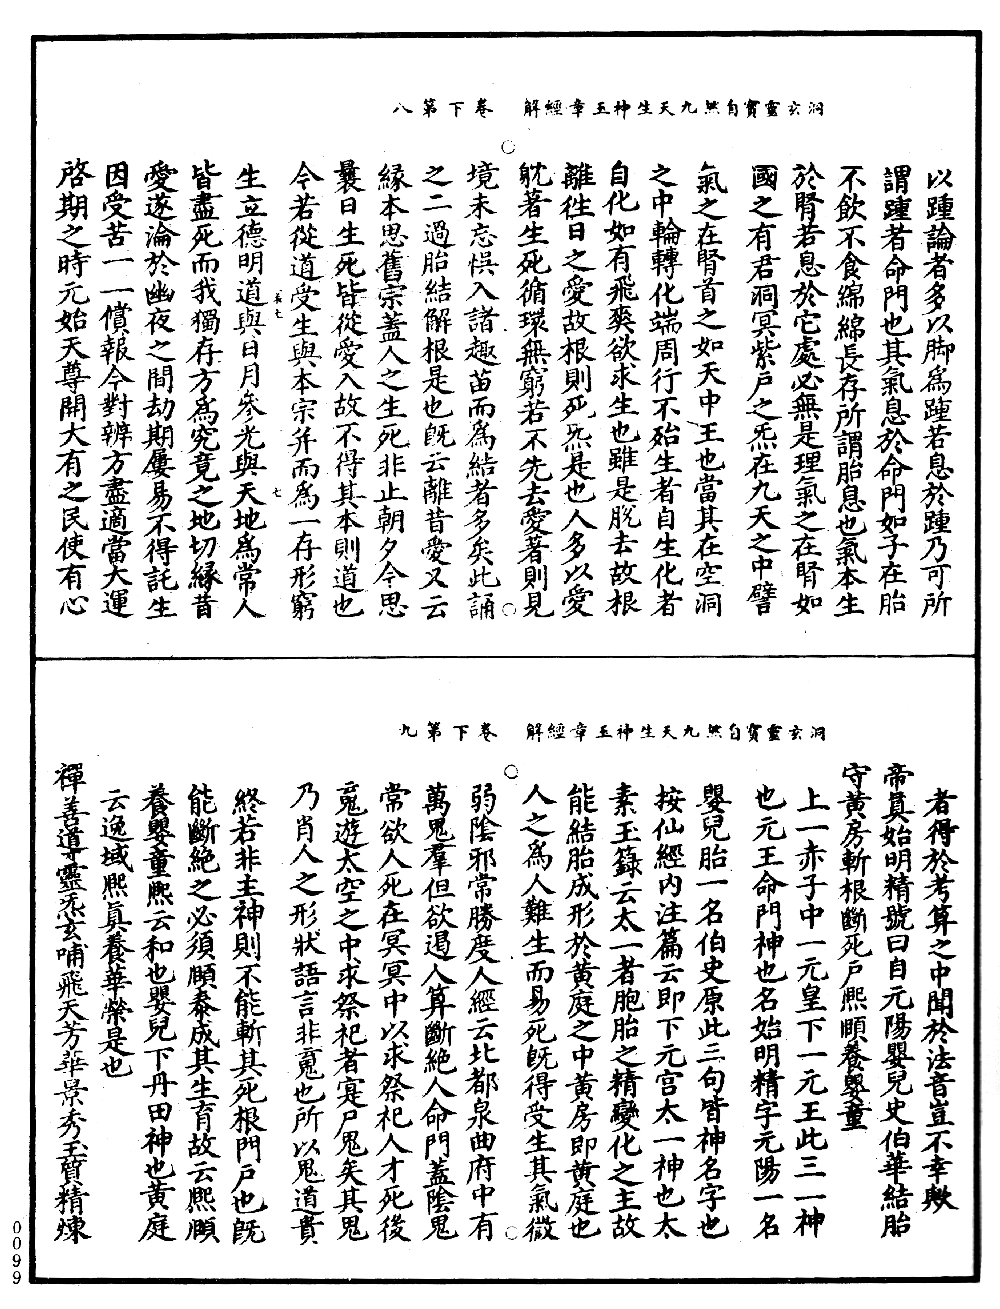 洞玄靈寶自然九天生神玉章經解　卷下第八
以踵論者多以脚爲踵若息於踵乃可所
謂踵者命門也其氣息於命門如子在胎
不飲不食綿綿長存所謂胎息也氣本生
於腎若息於它處必無是理氣之在腎如
國之有君洞冥紫戶之炁在九天之中譬
氣之在腎首之如天中王也當其在空洞
之中輪轉化端周行不殆生者自生化者
自化如有飛爽欲求生也雖是脫去故根
離徃日之愛故根則死炁是也人多以愛
躭著生死循環無窮若不先去愛著則見
境未忘悞入諸趣苗而爲結者多矣此誦
之二過胎結解根是也旣云離昔愛又云
緣本思舊宗蓋人之生死非止朝夕今思
曩日生死皆從愛入故不得其本則道也
今若從道受生與本宗并而爲一存形窮
生立德明道與日月參光與天地爲常人
皆盡死而我獨存方爲究竟之地切緣昔
愛遂淪於幽夜之間劫期屢易不得託生
因受苦一一償報今對辨方盡適當大運
啓期之時元始天尊開大有之民使有心
洞玄靈寶自然九天生神玉章經解　卷下第九
者得於考算之中聞於法音豈不幸歟
帝眞始明精號曰自元陽嬰兒史伯華結胎
守黃房斬根斷死戶熙頤養嬰童
上一赤子中一元皇下一元王此三一神
也元王命門神也名始明精字元陽一名
嬰兒胎一名伯史原此三句皆神名字也
按仙經內注篇云即下元宫太一神也太
素玉籙云太一者胞胎之精變化之主故
能結胎成形於黃庭之中黃房即黃庭也
人之爲人難生而易死旣得受生其氣微
弱陰邪常勝度人經云北都泉曲府中有
萬鬼羣但欲遏人算斷絕人命門蓋陰鬼
常欲人死在冥冥中以求祭祀人才死後
鬼遊太空之中求祭祀者寔尸鬼矣其鬼
乃肖人之形狀語言非鬼也所以鬼道貴
終若非主神則不能斬其死根門戶也旣
能斷絕之必須頤泰成其生育故云熙頤
養嬰童熙云和也嬰兒下丹田神也黃庭
云逸域熙眞養華榮是也
禪善導靈炁玄哺飛天芳華景秀玉質精煉
0099